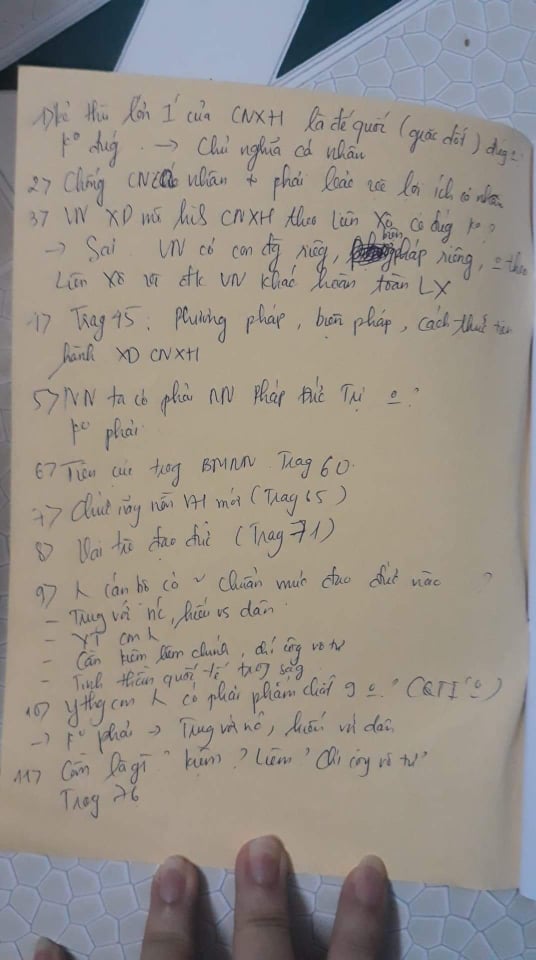 1) Kẻ thù lớn I của CNXH là đế quốc (giặc dốt) đúg o
ko đúg. → Chủ nghĩa cá nhân
2) Chống CN cá nhân + phải loại lợi ích cá nhân
3) VN XD mô hìh CNXH theo Liên Xô có đúg ko?
→ Sai VN có con đg riêng, biện pháp riêng, o theo
Liên Xô vì đk VN khác hoàn toàn LX
4) Trag 45: Phương pháp, biện pháp, cách thức tiến
hành XD CNXH
5) NN ta có phải NN Pháp Đức Trị o?
ko phải
6) Tiêu cực trog BMNN Trag 60.
7) Chức năg nền VH mới (Trag 65)
8) Vai trò đạo đức (Trag 71)
9) cán bộ có ~ chuẩn mực đạo đức nào?
- Trug với nc, hiếu vs dân.
- YT con
- Cần kiệm liêm chính, chí côg vô tư
- Tinh thần quốc tế trog ság
10) Ythg con có phải phẩm chất o? (QTI o)
→ ko phải → Trug với nc, hiếu với dân
11) Cần là gì? kiệm? Liêm? Chí côg vô tư?
Trag 76